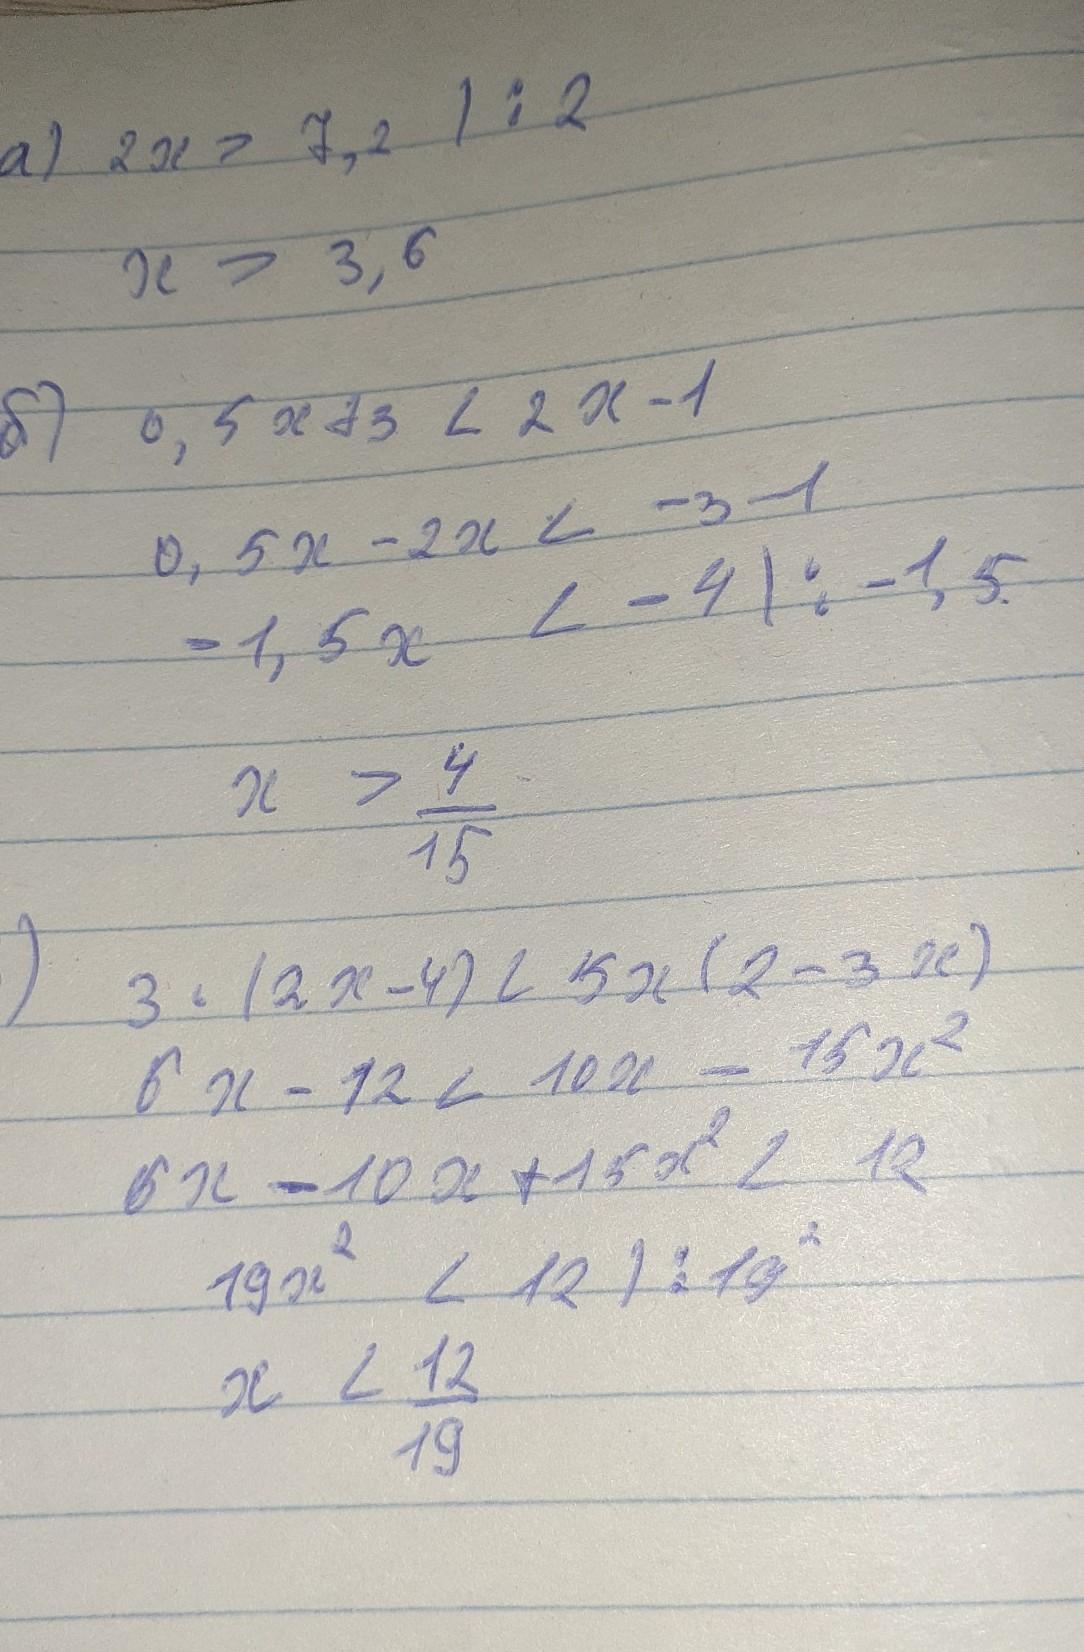 а) 2x > 7,2 | : 2
x > 3,6
б) 0,5x+3 < 2x-1
0,5x - 2x < -3-1
-1,5x < -4 | : -1,5
x > 4/15
) 3·(2x-4) < 5x(2-3x)
6x - 12 < 10x - 15x²
6x - 10x + 15x² < 12
19x² < 12 | : 19²
x < 12/19